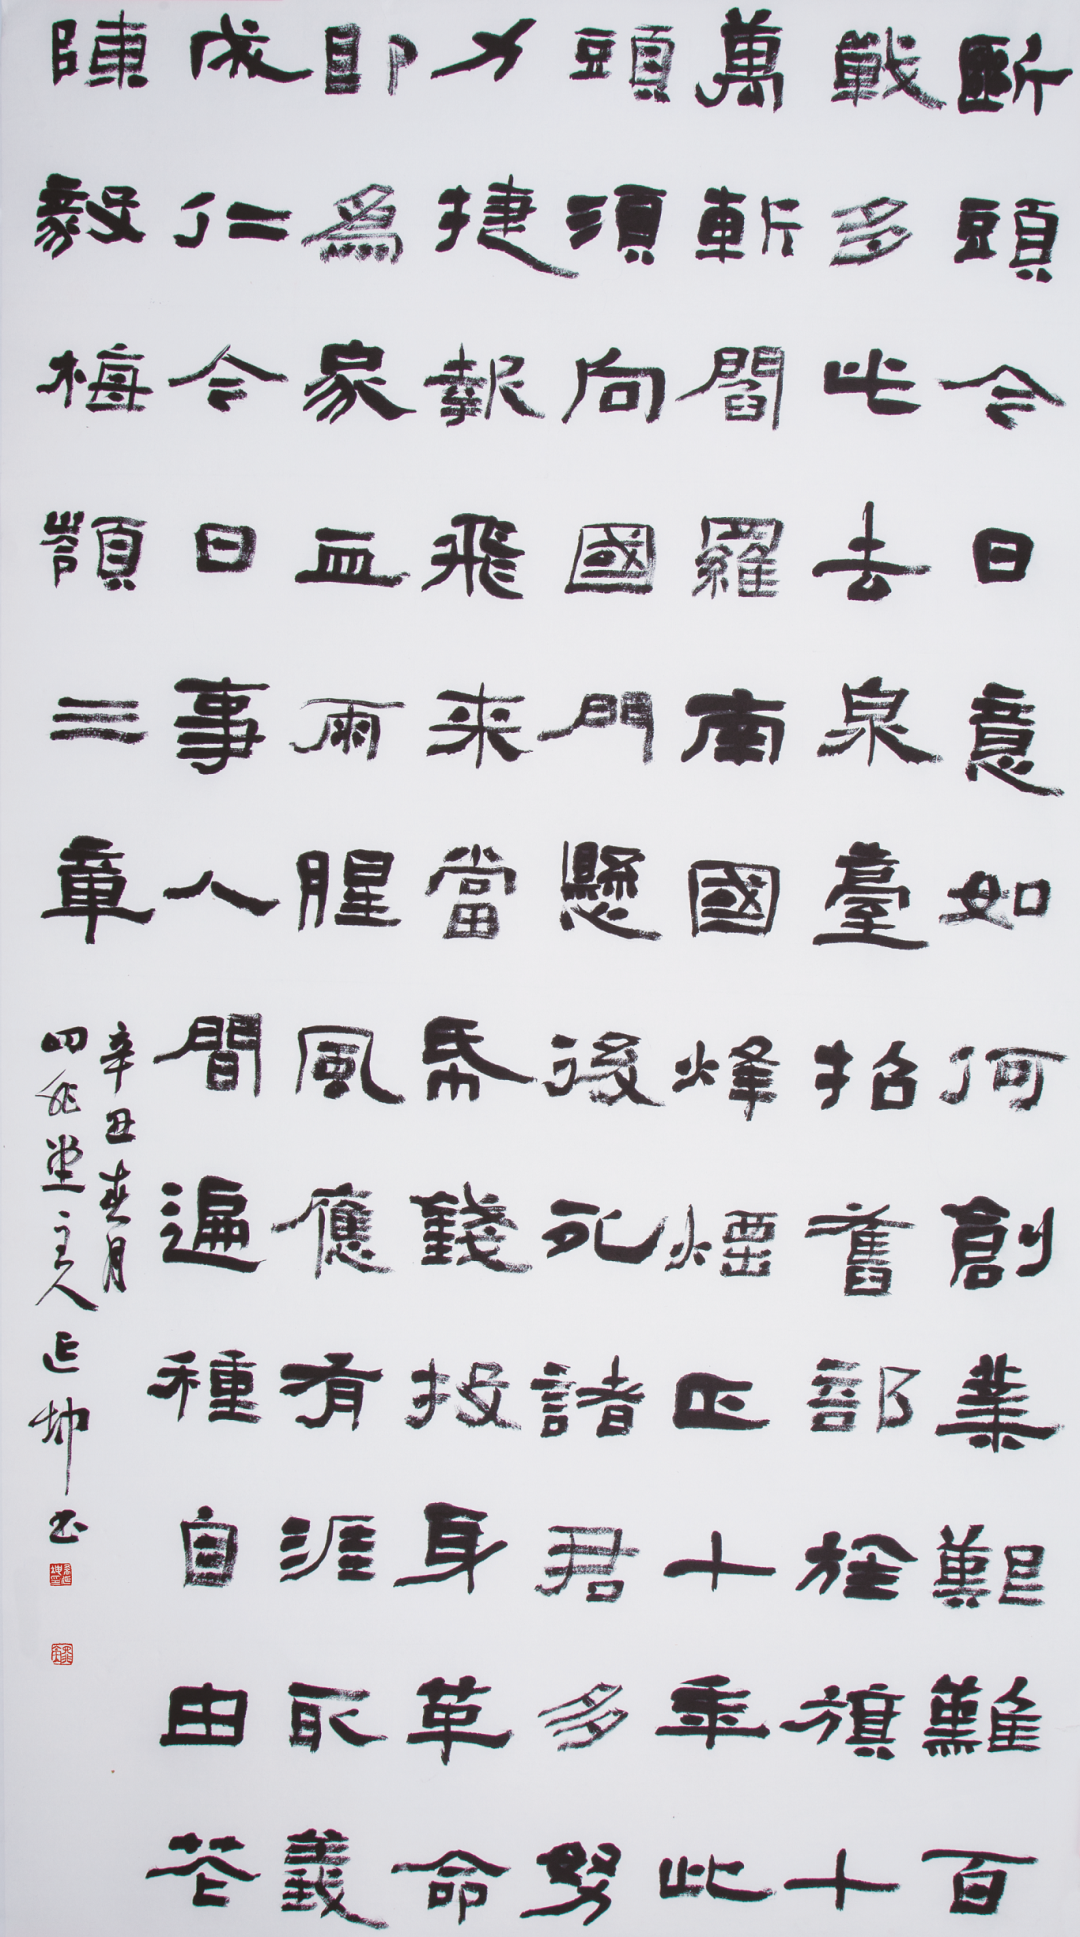 斷頭今日意如何創業艱難百
戰多此去泉臺招舊部旌旗十
萬斬閻羅南國烽煙正十年此
頭須向國門懸後死諸君多努
力捷報飛來當帋錢投身革命
即爲家血雨腥風應有涯取義
成仁今日事人間遍種自由花
陳毅梅嶺三章
辛丑春月
四堂主人坤书